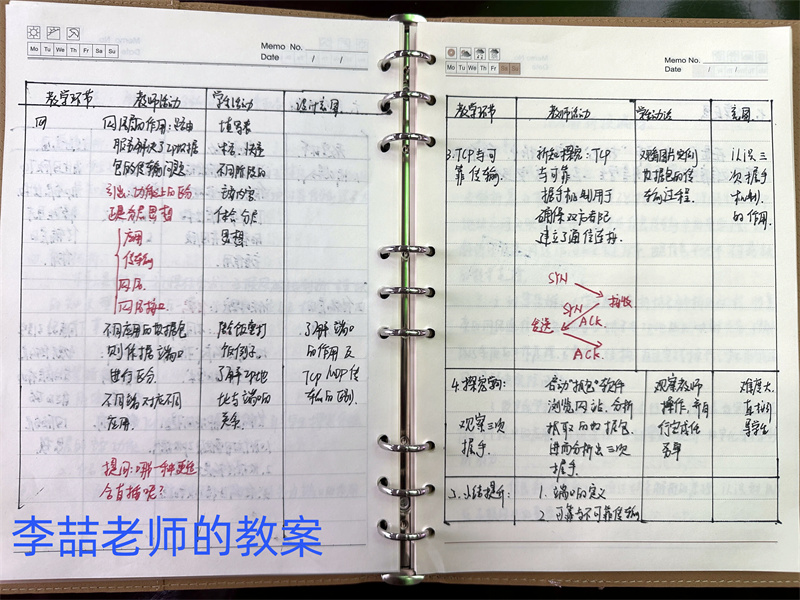 Memo No.
Mo Tu We Th Fr Sa Su
Date / /
教学环节 教师活动 学生活动 设计意图
网络层的作用:路由
服务解决了IP数据
包的传输问题
引出:功能上的区分
正是分层思想
应用
传输
网络
网络接口
填写表
不同阶段的
体会分层
思想
不同应用的数据包
则依据端口
进行区分
不同端口对应不同
应用.
了解IP地
址与端口的
关系
了解端口
的作用及
TCP/UDP传
输的区别
提问:哪一种更适
合直播呢?
李喆老师的教案
Memo No.
Mo Tu We Th Fr Sa Su
Date / /
教学环节 教师活动 学生活动 意图
3.TCP与可
靠传输.
TCP
与可靠
握手机制用于
确保双方都已
建立了通信连接.
观看图片空间
数据包的传
输过程.
认识三
次握手
机制
的作用.
SYN
接收
SYN
发送 ACK
ACK
4.探究:
观察三次
握手.
启动"抓包"软件
浏览网站.分析
抓取的数据包.
进而分析出三次
握手.
观察教师
操作,并自
行完成任
务单
难度大.
导学生
小结提升:
1.端口的定义
2.可靠与不可靠传输